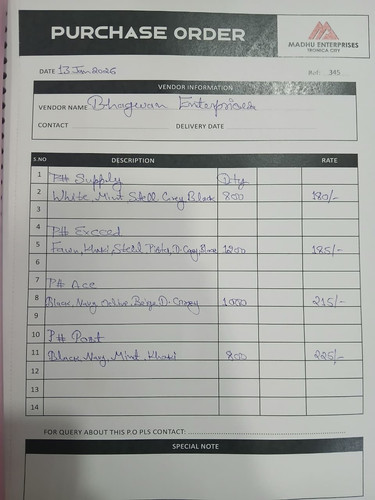 PURCHASE ORDER
MADHU ENTERPRISES
TRONICA CITY
DATE 13 Jan 2026
Ref: 345
VENDOR INFORMATION
VENDOR NAME Bhagwan Enterprises
CONTACT
DELIVERY DATE
S.NO DESCRIPTION RATE
1 P# Supply Qty
2 White, Mint Steel, Grey Black 800 180/-
3
4 P# Exceed
5 Fawn, Khaki, Steel, Pista, D-Grey, 1200 185/-
6
7 P# Ace
8 Black, Navy Olive, Beige D-Grey 1000 215/-
9
10 P#
11 Black, Navy, Mint, Khaki 800 225/-
12
13
14
FOR QUERY ABOUT THIS P.O PLS CONTACT:
SPECIAL NOTE